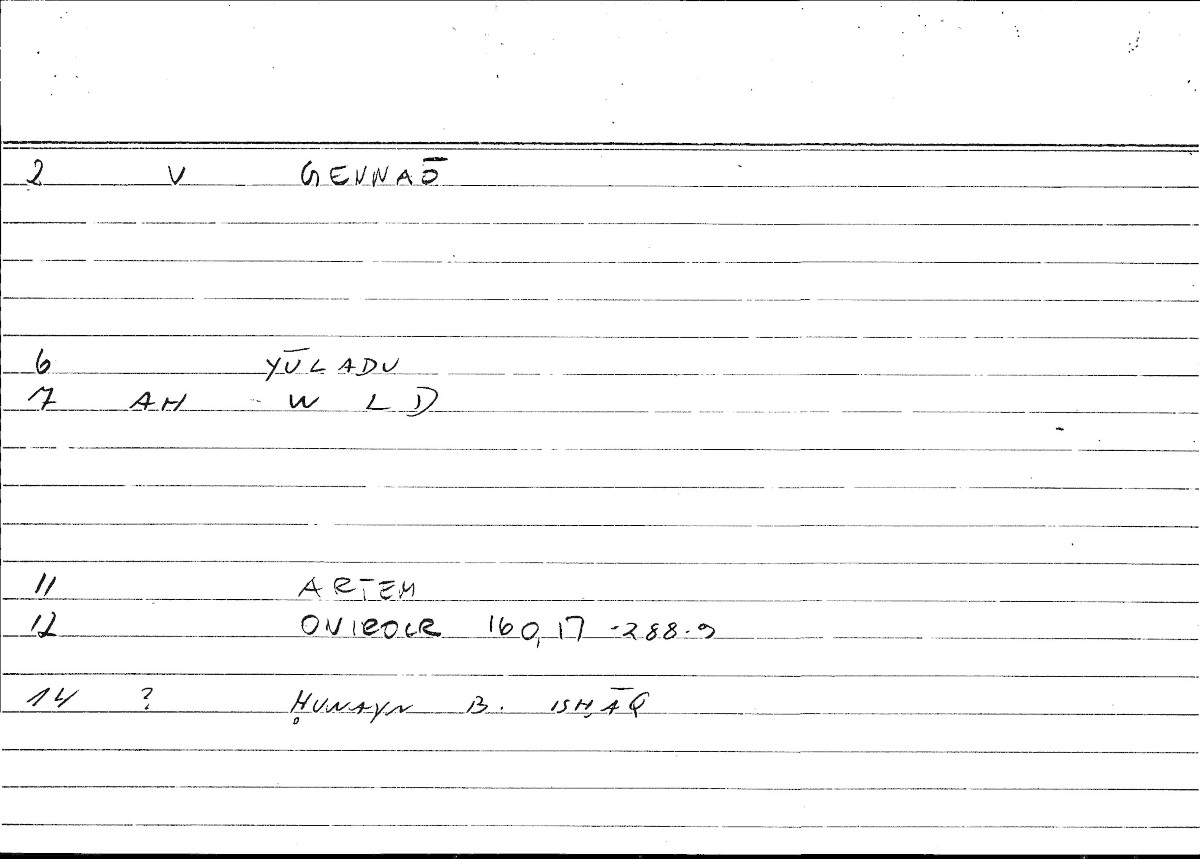 2 V GENNAŌ
6 YŪLADU
7 AH W L D
11 ARTEM
12 ONIROCR 160,17 -288.9
14 ? ḤUNAYN B. ISḤĀQ